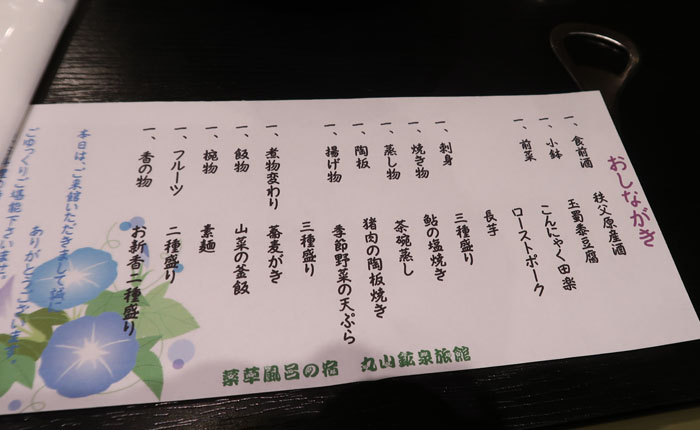 おしながき
一、食前酒　秩父原産酒
一、小鉢　玉蜀黍豆腐
こんにゃく田楽
一、前菜　ローストポーク
長芋
一、刺身　三種盛り
一、焼き物　鮎の塩焼き
一、蒸し物　茶碗蒸し
一、陶板　猪肉の陶板焼き
一、揚げ物　季節野菜の天ぷら
三種盛り
一、煮物変わり　蕎麦がき
一、飯物　山菜の釜飯
一、椀物　素麺
一、フルーツ　二種盛り
一、香の物　お新香二種盛り
本日は、ご来館いただきまして誠に
ありがとうございます。
ごゆっくりご堪能下さいませ。
薬草風呂の宿　丸山鉱泉旅館